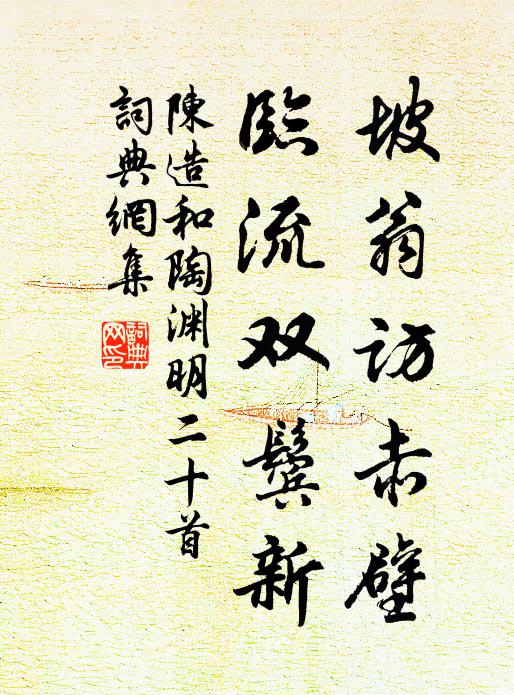 坡翁訪赤壁
臨流双鬢新
陳造和陶渊明二十首
詞典網集
詞典
网印